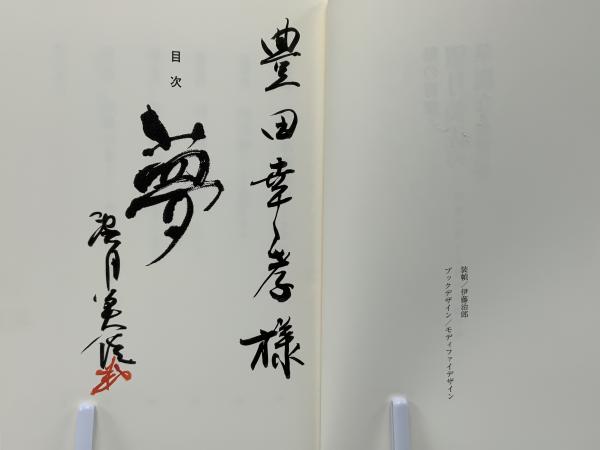 装幀／伊藤治郎
ブックデザイン／モディファイデザイン
豊田幸孝様
目次
夢
望月美佐